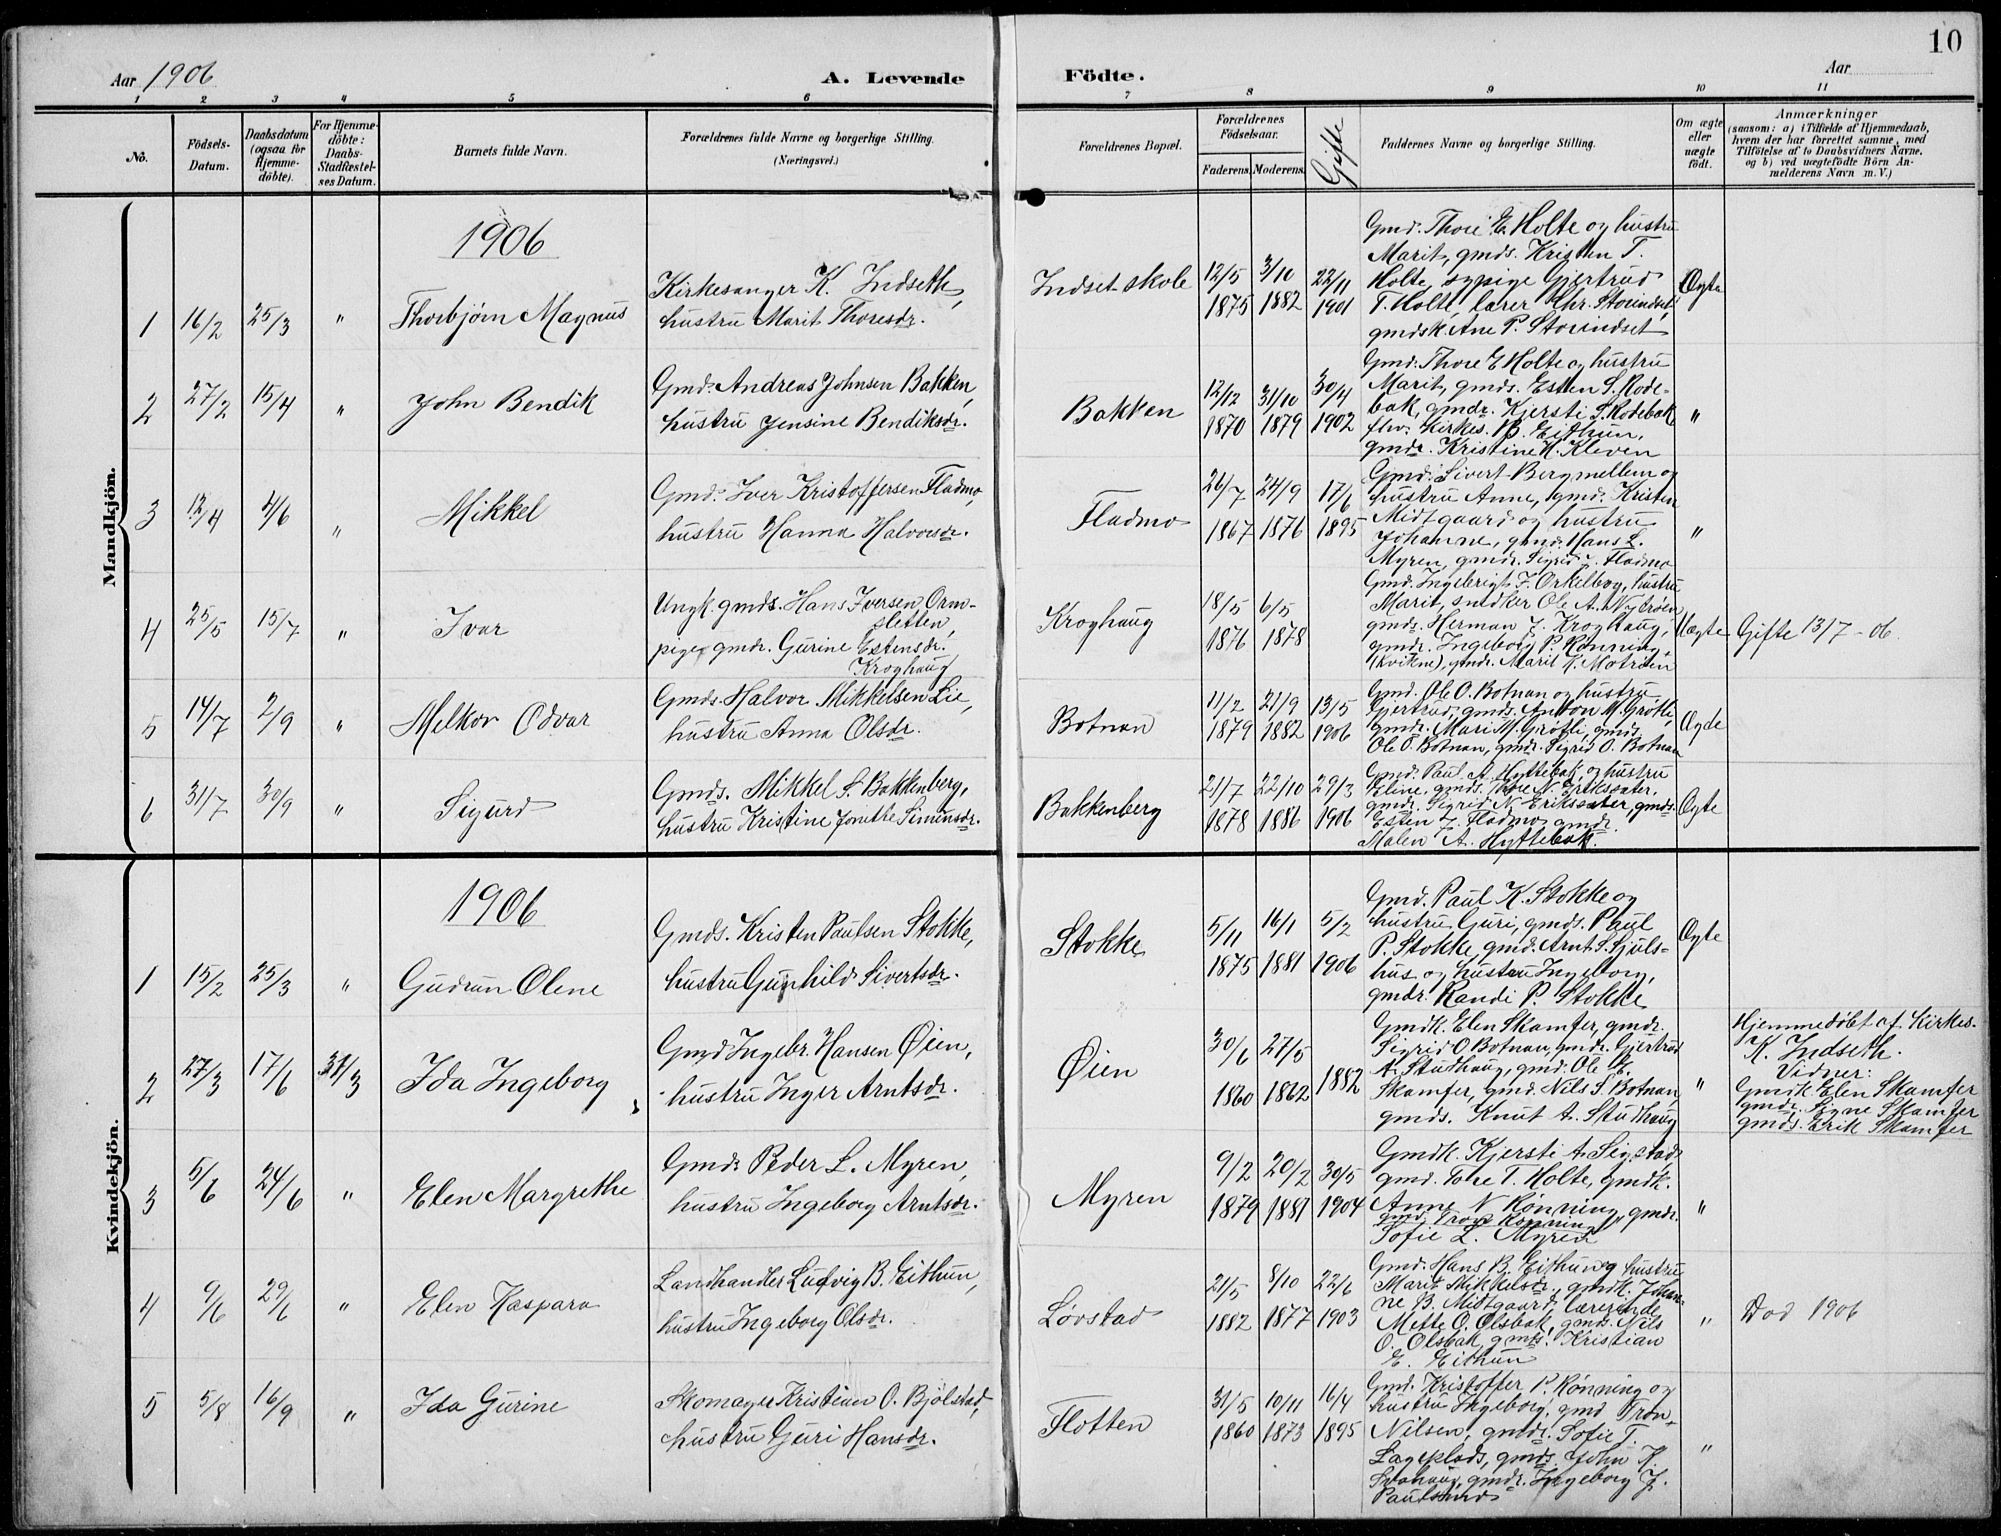 10
Aar 1906
A. Levende
Födte.
Aar
1 2 3 4 5 6 7 8 9 10 11
No.
Födsels-
Datum.
Daabsdatum
(ogsaa for
Hjemme-
döbte).
For Hjemme-
döbte:
Daabs-
Stadfæstel-
ses Datum.
Barnets fulde Navn.
Forældrenes fulde Navne og borgerlige Stilling.
(Næringsvei.)
Forældrenes Bopæl.
Forældrenes
Födselsaar.
Faderens.
Moderens.
Gifte
Faddernes Navne og borgerlige Stilling.
Om ægte
eller
uægte
födt.
Anmærkninger
(saasom: a) i Tilfælde af Hjemmedaab,
hvem der har forrettet samme, med
Tilföielse af to Daabsvidners Navne.
og b) ved uægtefödte Börn An-
melderens Navn m. V.)
Mandkjön.
1906
1 16/2 25/3 " Thorbjørn Magnus
Kirkesanger K. Indseth,
hustru Marit Thoresdr.
Indset skole
12/5 1875
3/10 1882
22/11 1901
Gmd. Thore E. Holte og hustru
Marit, gmds. Kristen T.
Holte, sypige Gjertrud
T. Holte, lærer Chr. Storindset,
gmdsk. Ane P. Storindset
Ægte
2 27/2 15/4 " John Bendik
Gmds. Andreas Johnsen Bakken,
hustru Jensine Bendiksdr.
Bakken
12/12 1870
31/10 1879
30/4 1902
Gmd. Thore E. Holte og hustru
Marit, gmds. Esten S. Rode-
bak, gmdr. Kjersti S. Rodebak
fhv. Kirkes. B. Eithun,
gmdr. Kristine K. Kleven
"
3 12/4 4/6 " Mikkel
Gmd. Iver Kristoffersen Fladmo,
hustru Hanna Halvorsdr.
Fladmo
26/7 1867
24/9 1876
17/6 1895
Gmd. Sivert Bergmellem og
hustru Anne, gmd. Kristen
Midtgaard og hustru
Johanne, gmd. Hans L.
Myren, gmdr. Sigrid J. Fladmo
"
4 25/5 15/7 " Ivar
Ungk. gmds. Hans Iversen Orm-
sletten,
pige gmdr. Gurine Estensdr.
Kroghaug
Kroghaug
18/5 1876
6/5 1878
Gmd. Ingebrigt J. Orkelbog, hustru
Marit, snedker Ole A. Nytrøen,
gmds. Herman J. Kroghaug,
gmdr. Ingeborg P. Rønning,
(Kvikne), gmdr. Marit K. Motrøen
Uægte
Gifte 13/7 - 06.
5 14/7 2/9 " Melkor Odvar
Gmds. Halvor Mikkelsen Lie,
hustru Anna Olsdr.
Botnan
11/2 1879
21/9 1882
13/5 1906
Gmd. Ole O. Botnan og hustru
Gjertrud, gmds. Anton M. Grøtli,
gmdr. Mari M. Grøtli, gmds.
Ole O. Botnan, gmdr. Sigrid O. Botnan
Ægde
6 31/7 30/9 " Sigurd
Gmds. Mikkel S. Bakkenberg,
hustru Kristine Jonette Simensdr.
Bakkenberg
21/7 1878
22/10 1886
29/3 1906
Gmd. Paul A. Hyttebak, og hustru
Eline, gmds. Thore N. Eriksæter,
gmdr. Sigrid N. Eriksæter, gmds.
Esten J. Fladmo, gmdr.
Malen A. Hyttebak.
Ægte
Kvindekjön.
1906
1 15/2 25/3 " Gudrun Olene
Gmds. Kristen Paulsen Stokke,
hustru Gunhild Sivertsdr.
Stokke
5/11 1875
16/1 1881
5/2 1906
Gmd. Paul K. Stokke og
hustru Guri, gmds. Paul
P. Stokke, gmd. Arnt S. Sjuls-
hus og hustru Ingeborg,
gmdr. Randi P. Stokke
Ægte
2 27/3 17/6 31/3 Ida Ingeborg
Gmd Ingebr. Hansen Øien,
hustru Inger Arntsdr.
Øien
30/6 1860
27/5 1862
1882
Gmdk. Elen Skamfer, gmdr.
Sigrid O. Botnan, gmdr. Gjertrud
A. Studhaug, gmd. Ole E.
Skamfer, gmd. Nils S. Botnan,
gmds. Knut A. Studhaug
"
Hjemmedøbt af Kirkes.
K. Indseth.
Vidner:
Gmdk Elen Skamfer
gmdr. Signe Skamfer
gmds. Erik Skamfer
3 5/6 24/6 " Elen Margrethe
Gmds Peder L. Myren,
hustru Ingeborg Arntsdr.
Myren
9/2 1879
20/2 1881
30/5 1904
Gmdk. Kjersti A. Sigstad
gmd. Tore T. Holte, gmdk.
Anne N Rønning, gmdr.
gmd. Tron Rønning
Sofie L. Myren
"
4 9/6 29/6 " Elen Kaspara
Landhandler Ludvig B. Eithun,
hustru Ingeborg Olsdr.
Løvstad
21/5 1882
8/10 1877
22/6 1903
Gmd. Hans B. Eithun og hustru
Marit Mikkelsdr., gmdk. Johan-
ne B. Midtgaard, lærerinde
Mette O. Olsbak, gmds. Nils
O. Olsbak, gmds. Kristian
E. Eithun
"
Død 1906
5 5/8 16/9 " Ida Gurine
Skomager Kristian O. Bjølstad,
hustru Guri Hansdr.
Flotten
31/5 1860
10/11 1873
16/4 1895
Gmd. Kristoffer P. Rønning og
hustru Ingeborg, gmd Tron
Nilsen, gmdr. Sofie T.
Lageplads, gmds. John K.
gmdr. Ingeborg J.
"